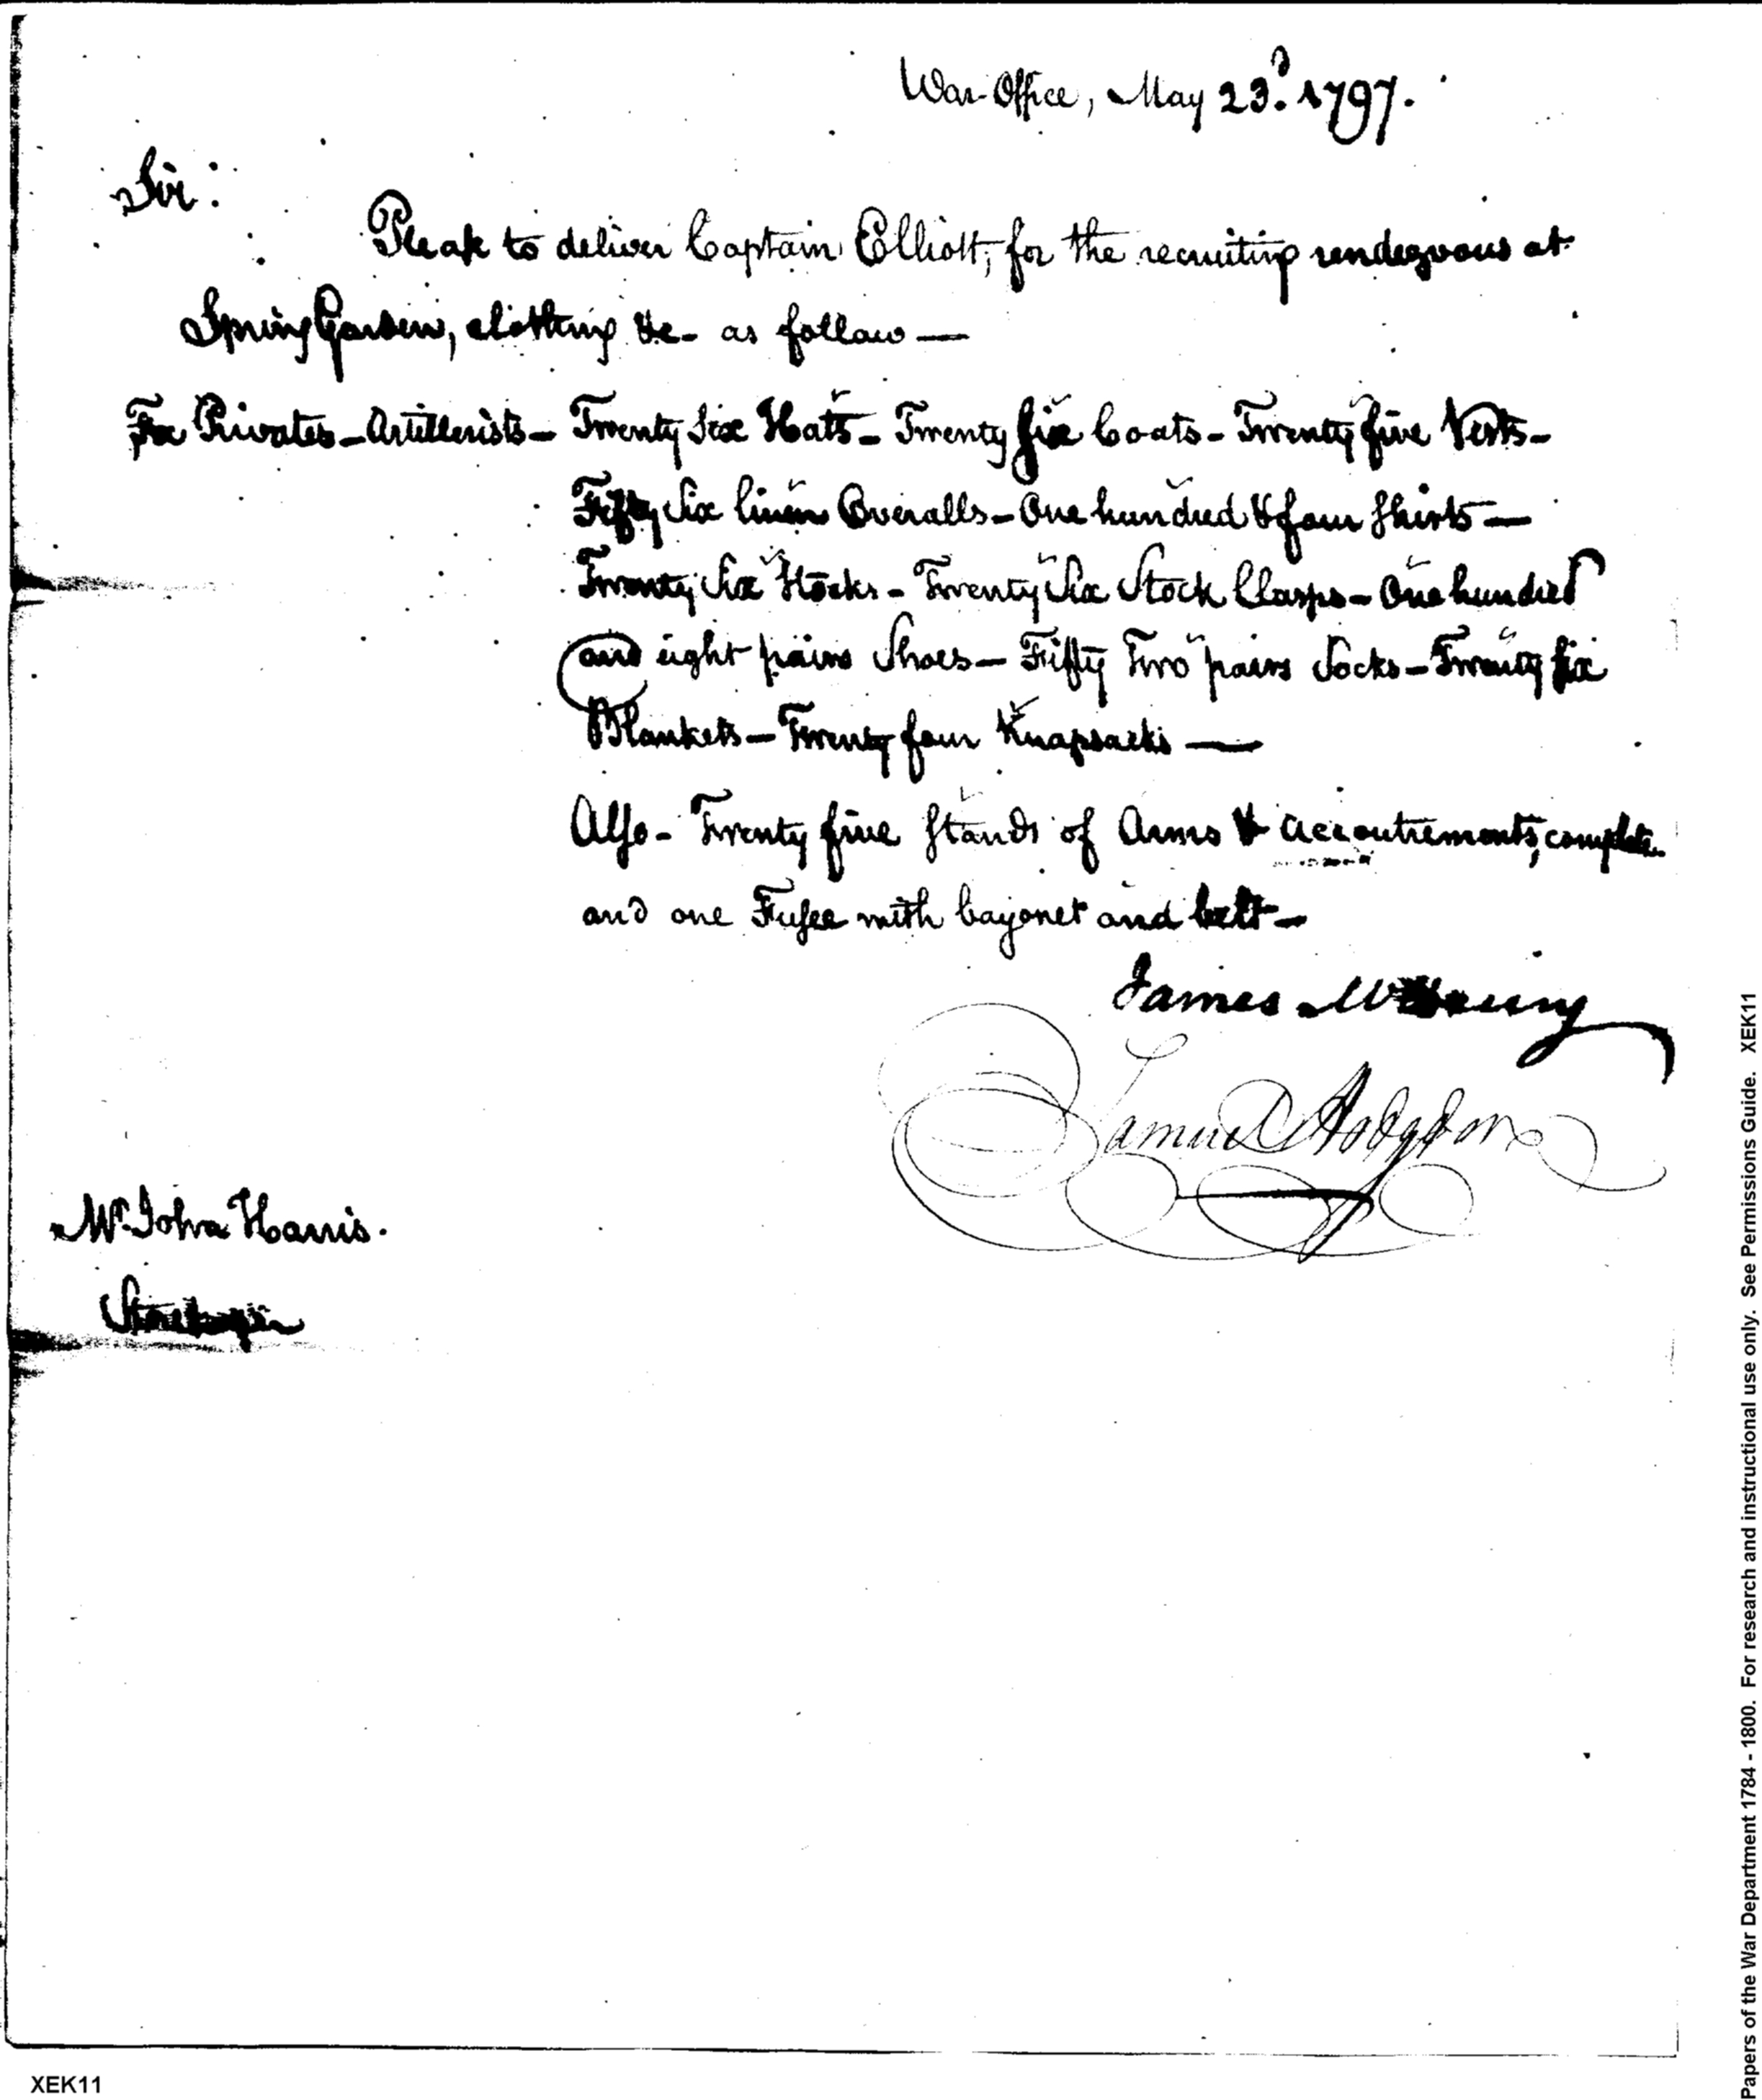 War-Office, May 23d. 1797.
Sir:
Please to deliver Captain Elliott, for the recruiting rendezvous at
Spring Garden, clothing &c- as follow —
For Privates - Artillerists - Twenty Six Hats - Twenty six Coats - Twenty five Vests -
Fifty Six linen Overalls - One hundred & four Shirts —
Twenty Six Stocks - Twenty Six Stock Clasps - One hundred
and eight pairs Shoes - Fifty Two pairs Socks - Twenty six
Blankets - Twenty four Knapsacks —
Also - Twenty five Stands of Arms & accoutrements, complete
and one Fusee with bayonet and belt -
James McHenry
Samuel Hodgdon
Mr. John Harris.
Storekeeper
XEK11
Papers of the War Department 1784 - 1800. For research and instructional use only. See Permissions Guide. XEK11